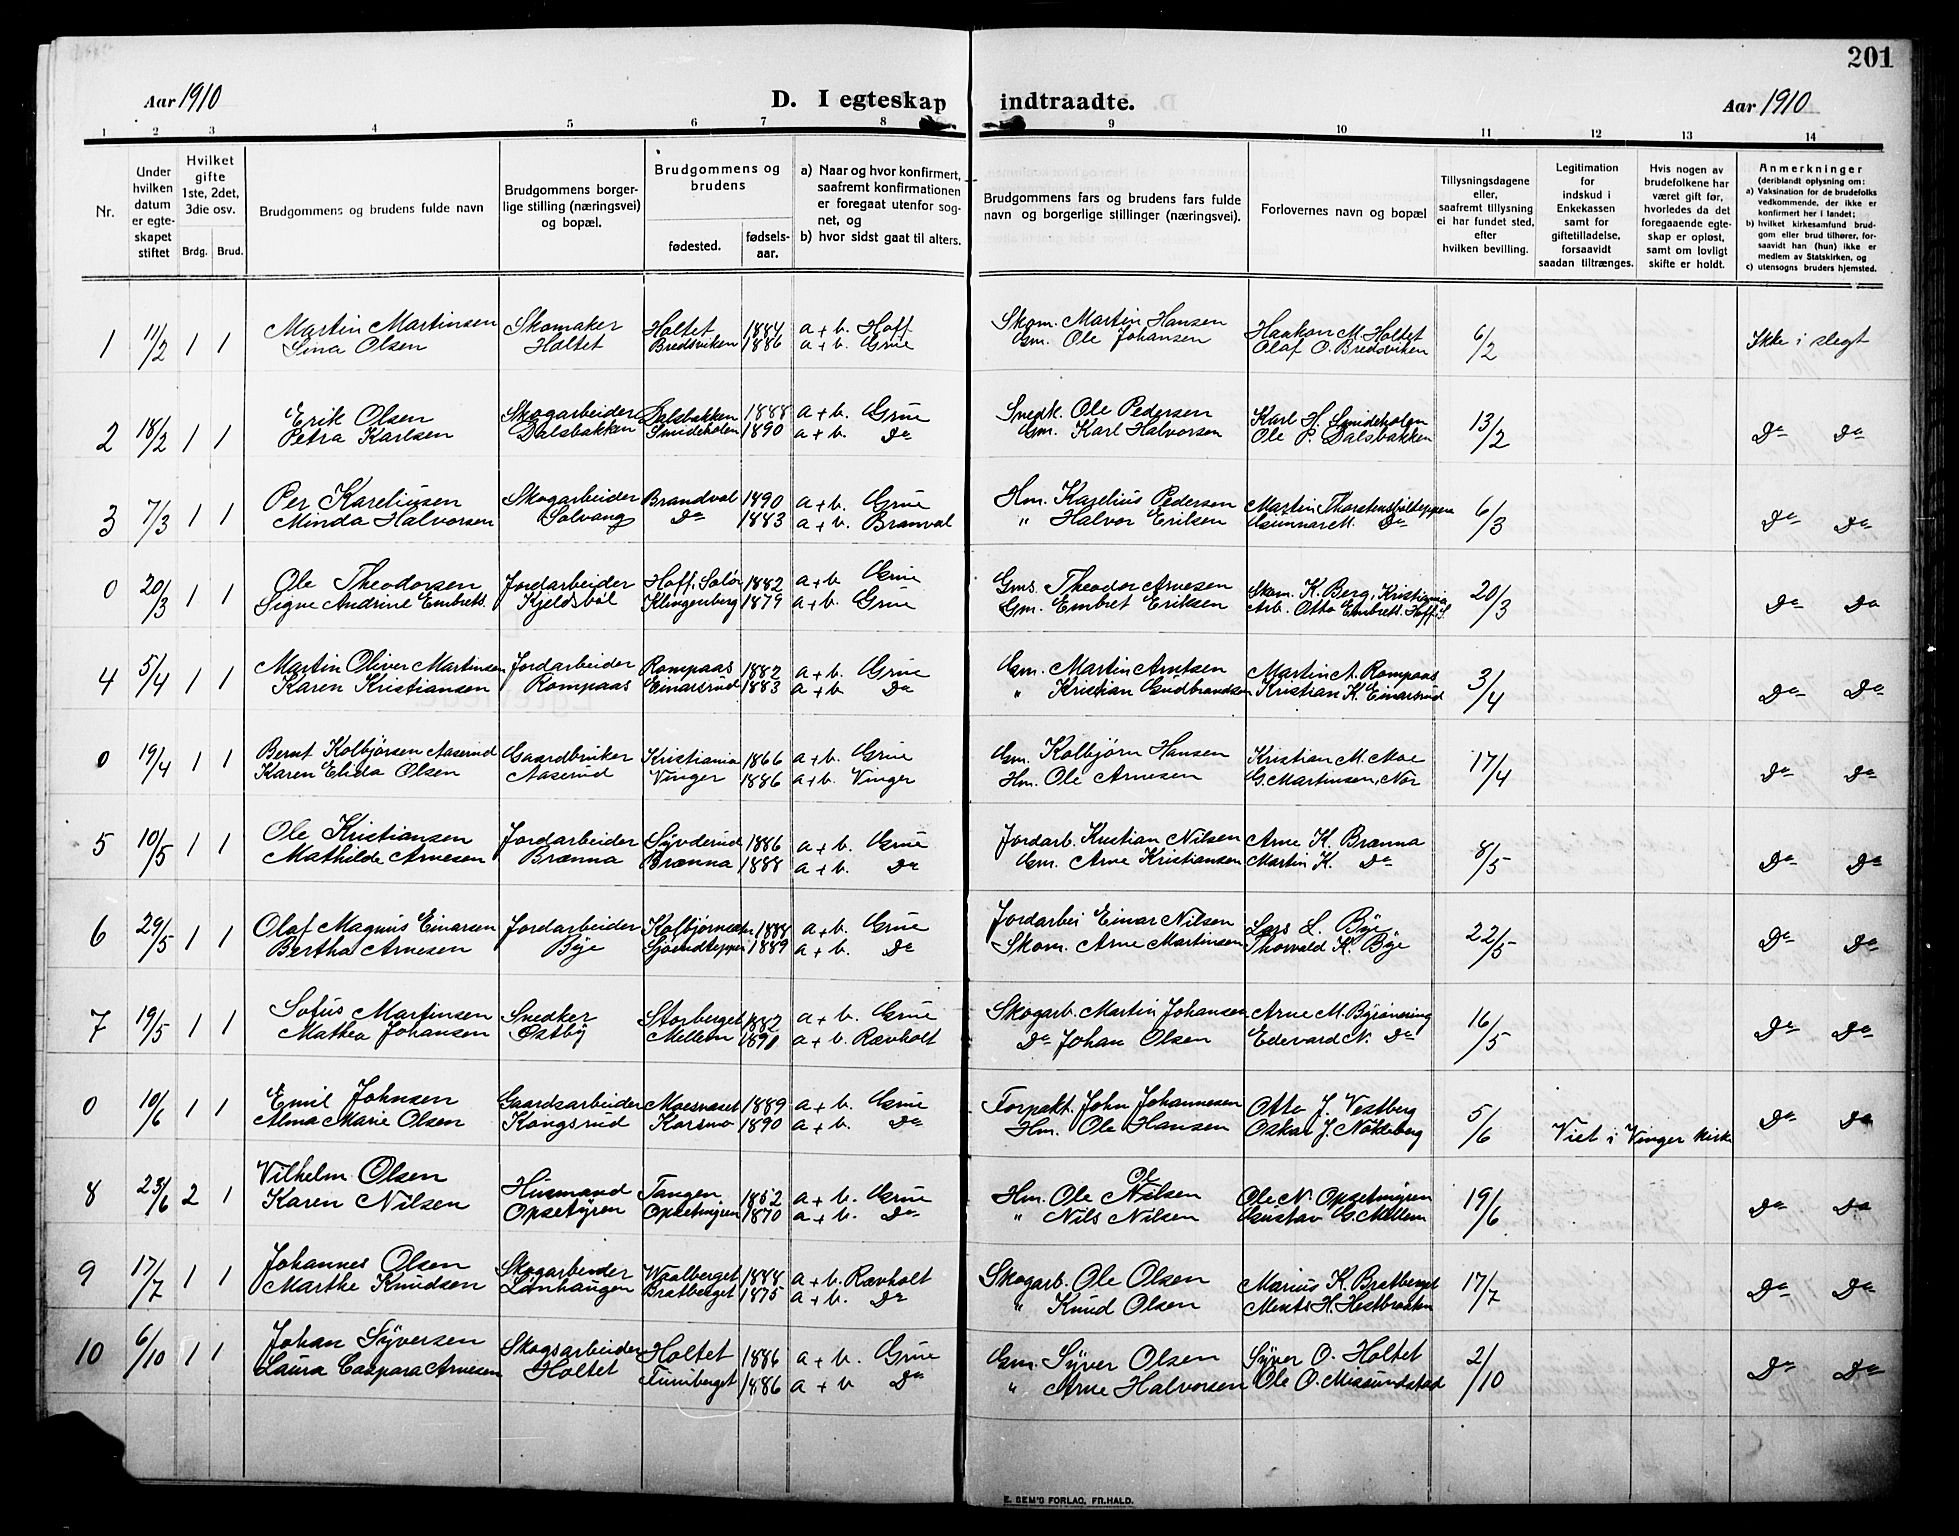 201
Aar 1910 D. I egteskap indtraadte. Aar 1910
1 2 3 4 5 6 7 8 9 10 11 12 13 14
Nr.
Under hvilken datum er egteskapet stiftet
Hvilket gifte 1ste, 2det, 3die osv.
Brdg. Brud.
Brudgommens og brudens fulde navn
Brudgommens borgerlige stilling (næringsvei) og bopæl.
Brudgommens og brudens
fødested. fødselsaar.
a) Naar og hvor konfirmert, saafremt konfirmationen er foregaat utenfor sognet, og
b) hvor sidst gaat til alters.
Brudgommens fars og brudens fars fulde navn og borgerlige stillinger (næringsvei).
Forlovernes navn og bopæl
Tillysningsdagene eller, saafremt tillysning ei har fundet sted, efter hvilken bevilling.
Legitimation for indskud i Enkekassen samt for giftetilladelse, forsaavidt saadan tiltrænges.
Hvis nogen av brudefolkene har været gift før, hvorledes da det foregaaende egteskap er opløst, samt om lovligt skifte er holdt.
Anmerkninger
(deriblandt oplysning om:
a) Vaksination for de brudefolks vedkommende, der ikke er konfirmert her i landet;
b) hvilket kirkesamfund brudgom eller brud tilhører, forsaavidt han (hun) ikke er medlem av Statskirken, og
c) utensogns bruders hjemsted.
1 11/2 1 1 Martin Martinsen Skomaker Holtet 1884 a + b. Hoff Skom. Martin Hansen Haakon M. Holtet 6/2 Ikke i slegt
Sina Olsen Holtet Bredsviken 1886 a + b. Grue Gm. Ole Johansen Olaf O. Bredsviken
2 18/2 1 1 Erik Olsen Skogarbeider Dalsbakken 1888 a + b. Grue Snedk. Ole Pedersen Karl H. Smideholen 13/2 Do Do
Petra Karlsen Dalsbakken Smideholen 1890 a + b. Do Gm. Karl Halvorsen Ole P. Dalsbakken
3 7/3 1 1 Per Kareliusen Skogarbeider Brandval 1890 a + b. Grue Hm. Karelius Pedersen Martin 6/3 Do Do
Minda Halvorsen Solvang Do 1883 a + b. Branval " Halvor Eriksen Gunnar M. Do
0 20/3 1 1 Ole Theodorsen Jordarbeider Hoff, Solør 1882 a + b Grue Gms. Theodor Arnesen Skom. K. Berg, Kristiania 20/3 Do Do
Signe Andrine Embrets. Kjeldsbøl Klingenberg 1879 a + b. Grue Gm. Embret Eriksen Arb. Otto Embrets. Hoff S.
4 5/4 1 1 Martin Oliver Martinsen Jordarbeider Rompaas 1882 a + b. Grue Gm. Martin Arntsen Martin A. Rompaas 3/4 Do Do
Karen Kristiansen Rompaas Einarsrud 1883 a + b Do " Kristian Gudbrandsen Kristian K. Einarsrud
0 19/4 1 1 Bernt Kolbjørsen Aaserud Gaardbruker Kristiania 1866 a + b. Grue Gm. Kolbjørn Hansen Kristian M. Moe 17/4 Do Do
Karen Elida Olsen Aaserud Vinger 1886 a + b. Vinger Hm. Ole Arnesen G. Martinsen, Nor
5 10/5 1 1 Ole Kristiansen Jordarbeider Syvderud 1886 a + b. Grue Jordarb. Kristian Nilsen Arne K. Brænna 8/5 Do Do
Mathilde Arnesen Brænna Brænna 1888 a + b. Do Gm. Arne Kristiansen Martin K. Do
6 29/5 1 1 Olaf Magnus Einarsen Jordarbeider 1888 a + b. Grue Jordarbei Einar Nilsen Lars L. Bye, 22/5 Do Do
Bertha Arnesen Bye 1889 a + b. Do Skom. Arne Martinsen Thorvald K. Bye
7 19/5 1 1 Sofus Martinsen Snedker Storberget 1882 a + b. Grue Skogarb. Martin Johansen Arne M. 16/5 Do Do
Mathea Johansen Østby Mellem 1890 a + b. Rævholt Do Johan Olsen Edevard N. Do
0 10/6 1 1 Emil Johnsen Gaardsarbeider 1889 a + b. Grue Forpakt. John Johannesen Otto J. Vestberg 5/6 Viet i Vinger kirke Do Do
Alma Marie Olsen Kongsrud Korsmo 1890 a + b. Do Hm. Ole Hansen Oskar J. Nökleberg
8 23/6 2 1 Vilhelm Olsen Husmand Tangen 1852 a + b. Grue Hm. Ole Ol Nilsen Ole N. Opsetmyren 19/6 Do Do
Karen Nilsen Opsetyren Opsetmyren 1870 a + b. Do " Nils Nilsen Gustav G. Mellem
9 17/7 1 1 Johannes Olsen Skogarbeider Waalberget 1888 a + b. Rævholt Skogarb. Ole Olsen Marius K. Bratberget 17/7 Do Do
Marthe Knudsen Lønhaugen Bratberget 1875 a + b. Do " Knud Olsen Ments H. Hestbraaten
10 6/10 1 1 Johan Syversen Skogsarbeider Holtet 1886 a + b. Grue Gm. Syver Olsen Syver O. Holtet 2/10 Do Do
Laura Caspara Arnesen Holtet Furuberget 1886 a + b Do " Arne Halvorsen Ole O. Missundstad
E. SEM'S FORLAG, FR.HALD.